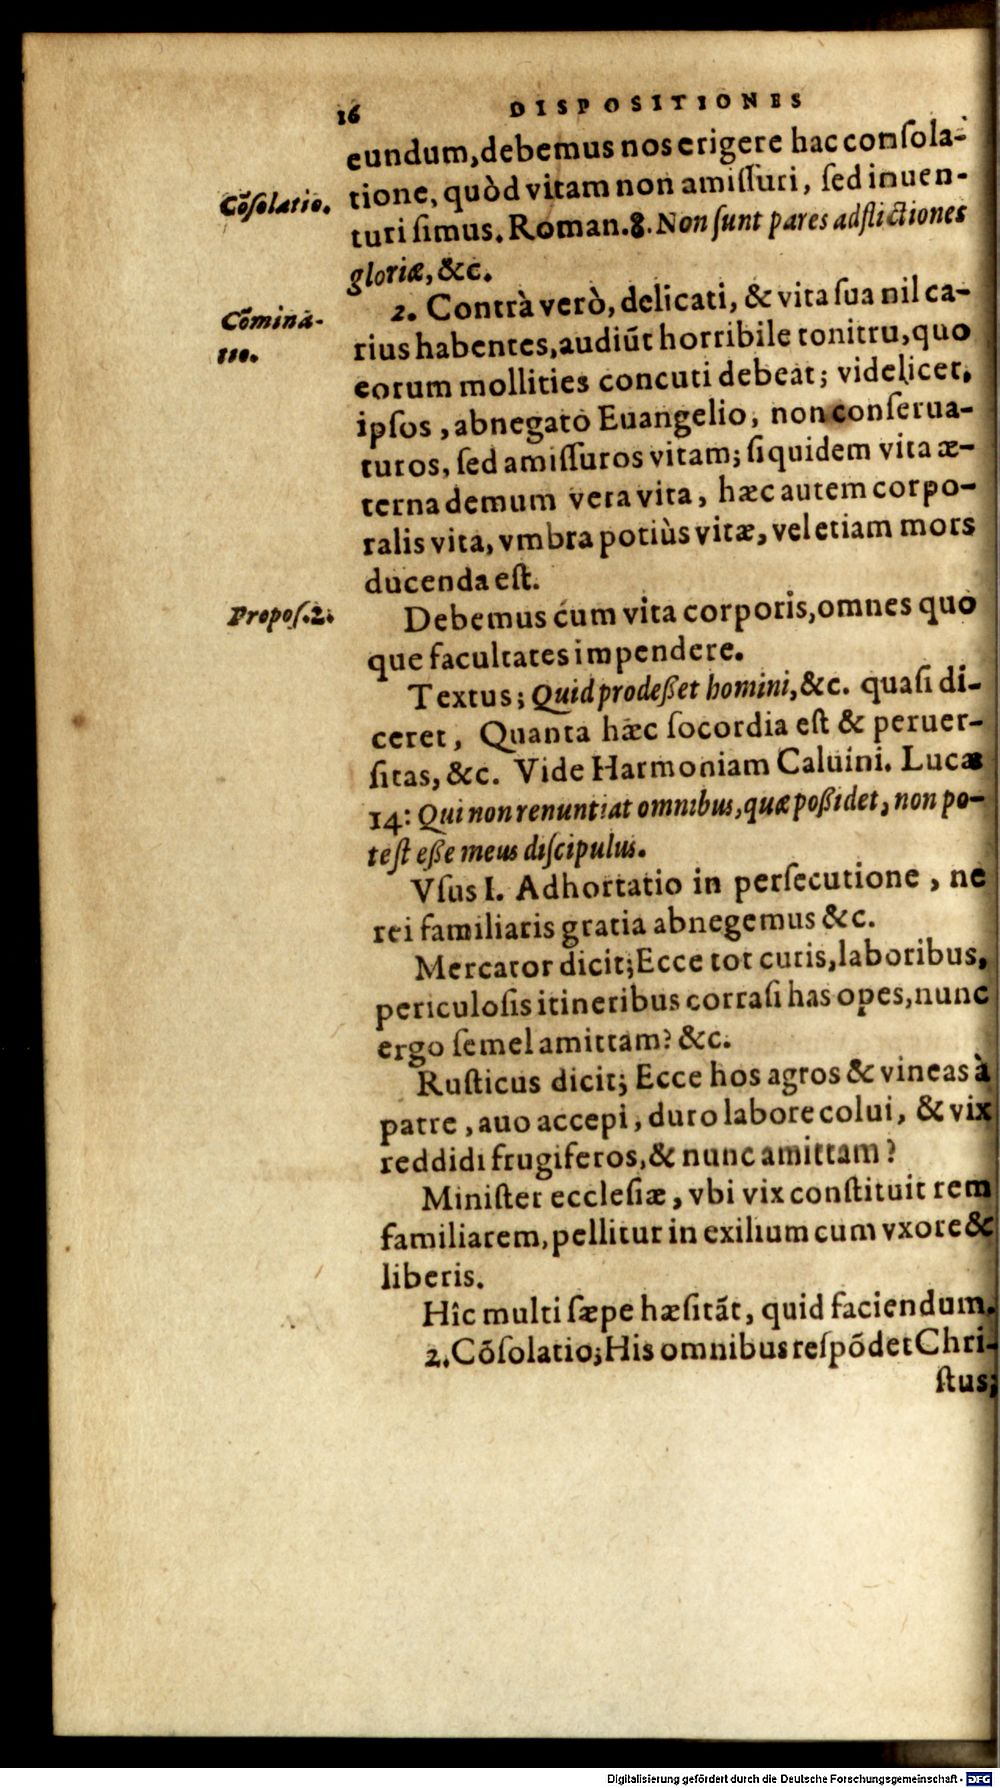 16 DISPOSITIONES
eundum, debemus nos erigere hac conſola-
Cõſolatio.
tione, quòd vitam non amiſſuri, ſed inuen-
turi ſimus. Roman. 8. Non ſunt pares adflictiones
gloriæ, &c.
Cõmina-
tio.
2. Contrà verò, delicati, & vita ſua nil ca-
rius habentes, audiũt horribile tonitru, quo
eorum mollities concuti debeat; videlicet,
ipſos, abnegato Euangelio, non conſerua-
turos, ſed amiſſuros vitam; ſiquidem vita æ-
terna demum vera vita, hæc autem corpo-
ralis vita, vmbra potiùs vitæ, vel etiam mors
ducenda eſt.
Propoſ. 2.
Debemus cum vita corporis, omnes quo
que facultates impendere.
Textus; Quid prodeßet homini, &c. quaſi di-
ceret, Quanta hæc ſocordia eſt & peruer-
ſitas, &c. Vide Harmoniam Caluini. Lucæ
14: Qui non renuntiat omnibus, quæ poßidet, non po-
teſt eße meus diſcipulus.
Vſus I. Adhortatio in perſecutione, ne
rei familiaris gratia abnegemus &c.
Mercator dicit; Ecce tot curis, laboribus,
periculoſis itineribus corraſi has opes, nunc
ergo ſemel amittam? &c.
Ruſticus dicit; Ecce hos agros & vineas à
patre, auo accepi, duro labore colui, & vix
reddidi frugiferos, & nunc amittam?
Miniſter eccleſiæ, vbi vix conſtituit rem
familiarem, pellitur in exilium cum vxore &
liberis.
Hîc multi ſæpe hæſitãt, quid faciendum.
2. Cõſolatio; His omnibus reſpõdet Chri-
ſtus;
Digitalisierung gefördert durch die Deutsche Forschungsgemeinschaft - DFG